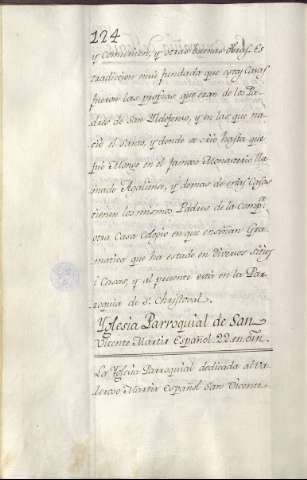 124
y comunion, y otras buenas obras. Es
tradicion mui fundada que estas Casas
fueron las propias que eran de los Pa-
dres de San Yldefonso, y en las que na-
cio el santo, y donde se crio hasta que
fue Monge en el famoso Monasterio lla-
mado Agaliense, y demas de estas Casas
tienen los mismos Padres de la Comp.ª
otra Casa Colegio en que enseñan Gra-
matica que ha estado en diversos sitios
i Casas, y al presente esta en la Par-
roquia de S. Christoval.
Yglesia Parroquial de San
Vicente Martir Español. 22. en
La Yglesia Parroquial dedicada al Va-
leroso Martir Español San Vicente